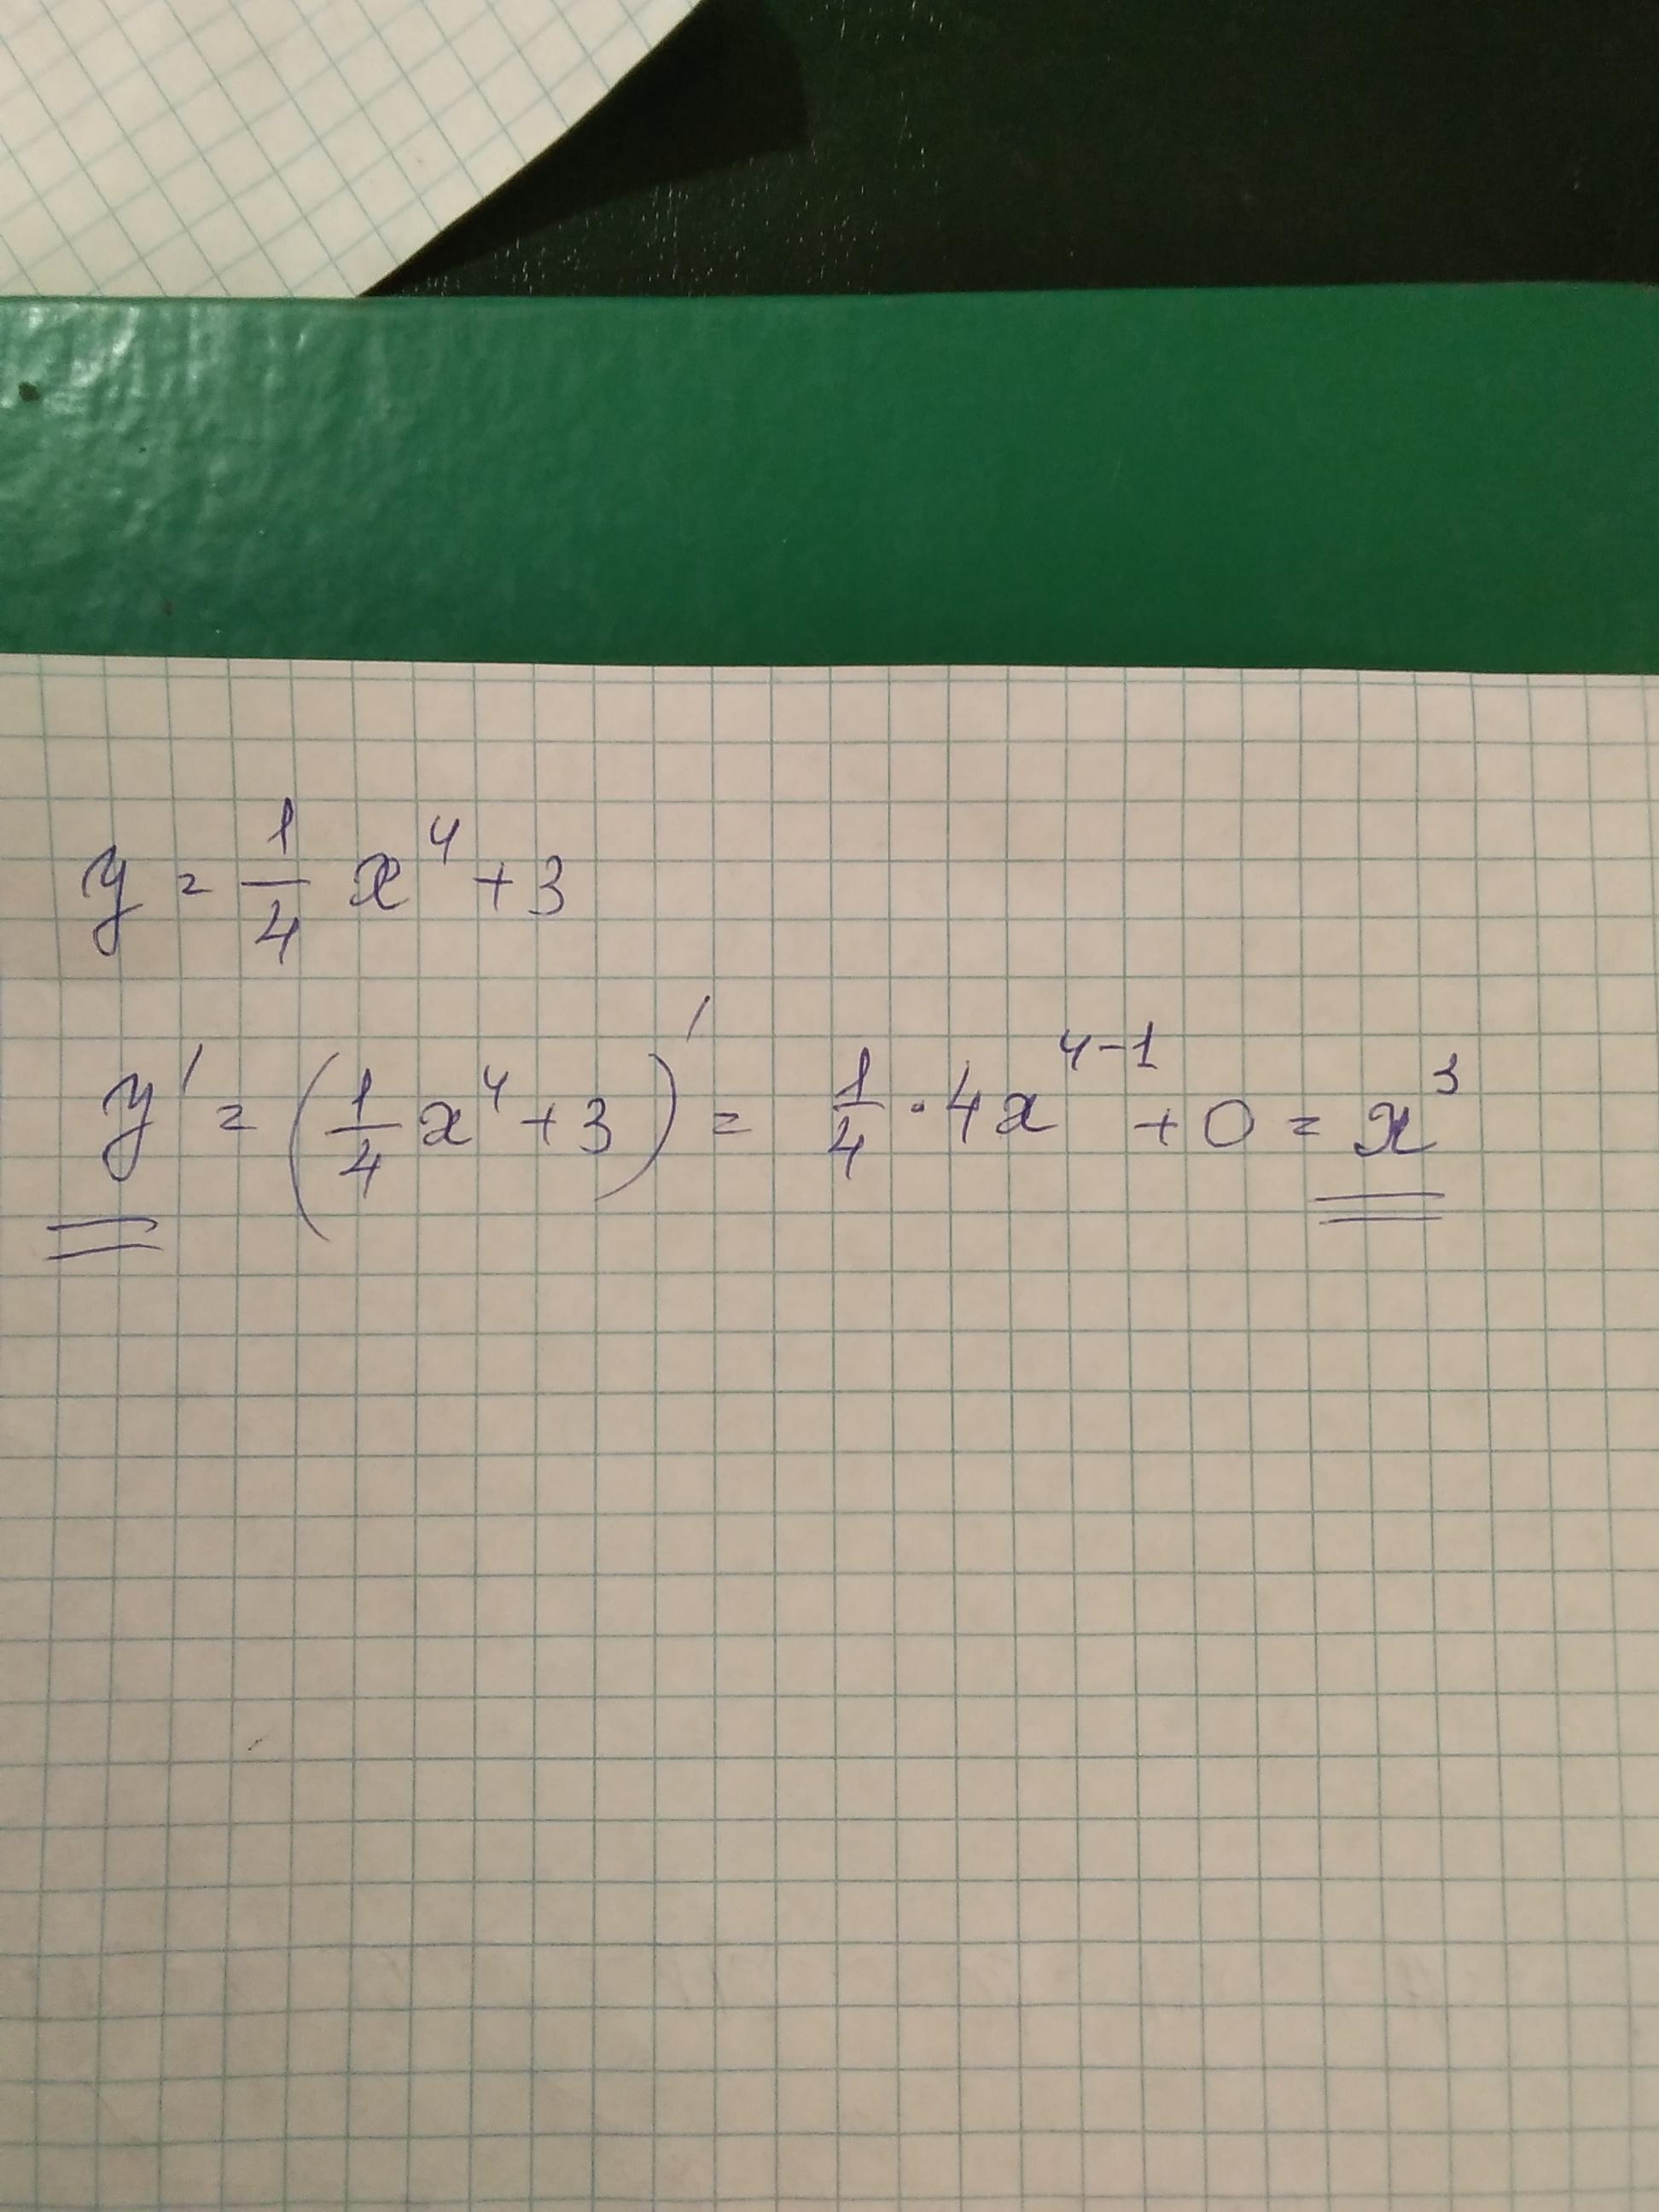 y = 1/4 x^4 + 3
y' = (1/4 x^4 + 3)' = 1/4 · 4x^(4-1) + 0 = x^3